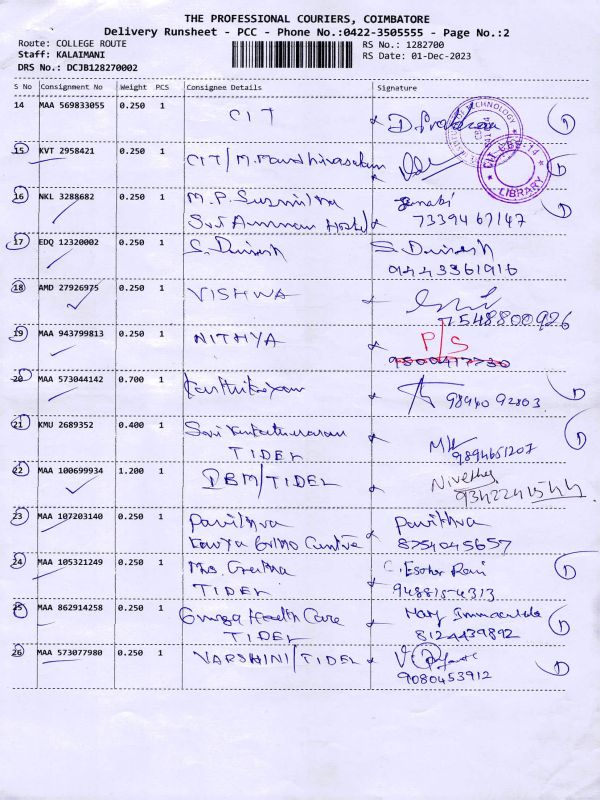 THE PROFESSIONAL COURIERS, COIMBATORE
Delivery Runsheet - PCC - Phone No.:0422-3505555 - Page No.:2
Route: COLLEGE ROUTE
Staff: KALAIMANI
DRS No.: DCJB128270002
RS No.: 1282700
RS Date: 01-Dec-2023
S No Consignment No Weight PCS Consignee Details Signature
14 MAA 569833055 0.250 1 CIT
TECHNOLOGY
CIT CBE-14 LIBRARY
15 KVT 2958421 0.250 1 CIT/M.
16 NKL 3288682 0.250 1 M.P. Susmitha
Hostel 7339467147
17 EDQ 12320002 0.250 1 S. Dinesh S. Dinesh
9443361916
18 AMD 27926975 0.250 1 VISHWA
7548800926
19 MAA 943799813 0.250 1 NITHYA P/S
20 MAA 573044142 0.700 1 Karthikeyan 9894092803
21 KMU 2689352 0.400 1
TIDEL 9894651207
22 MAA 100699934 1.200 1 IBM/TIDEL Nivetha
9342241544
23 MAA 107203140 0.250 1 Pavithra Pavithra
Kavya Centre 8754045657
24 MAA 105321249 0.250 1 Mrs. Geetha
TIDEL 9488154313
25 MAA 862914258 0.250 1 Omega Health Care Mary
TIDEL 8124439892
26 MAA 573077980 0.250 1 VARSHINI/TIDEL
9080453912